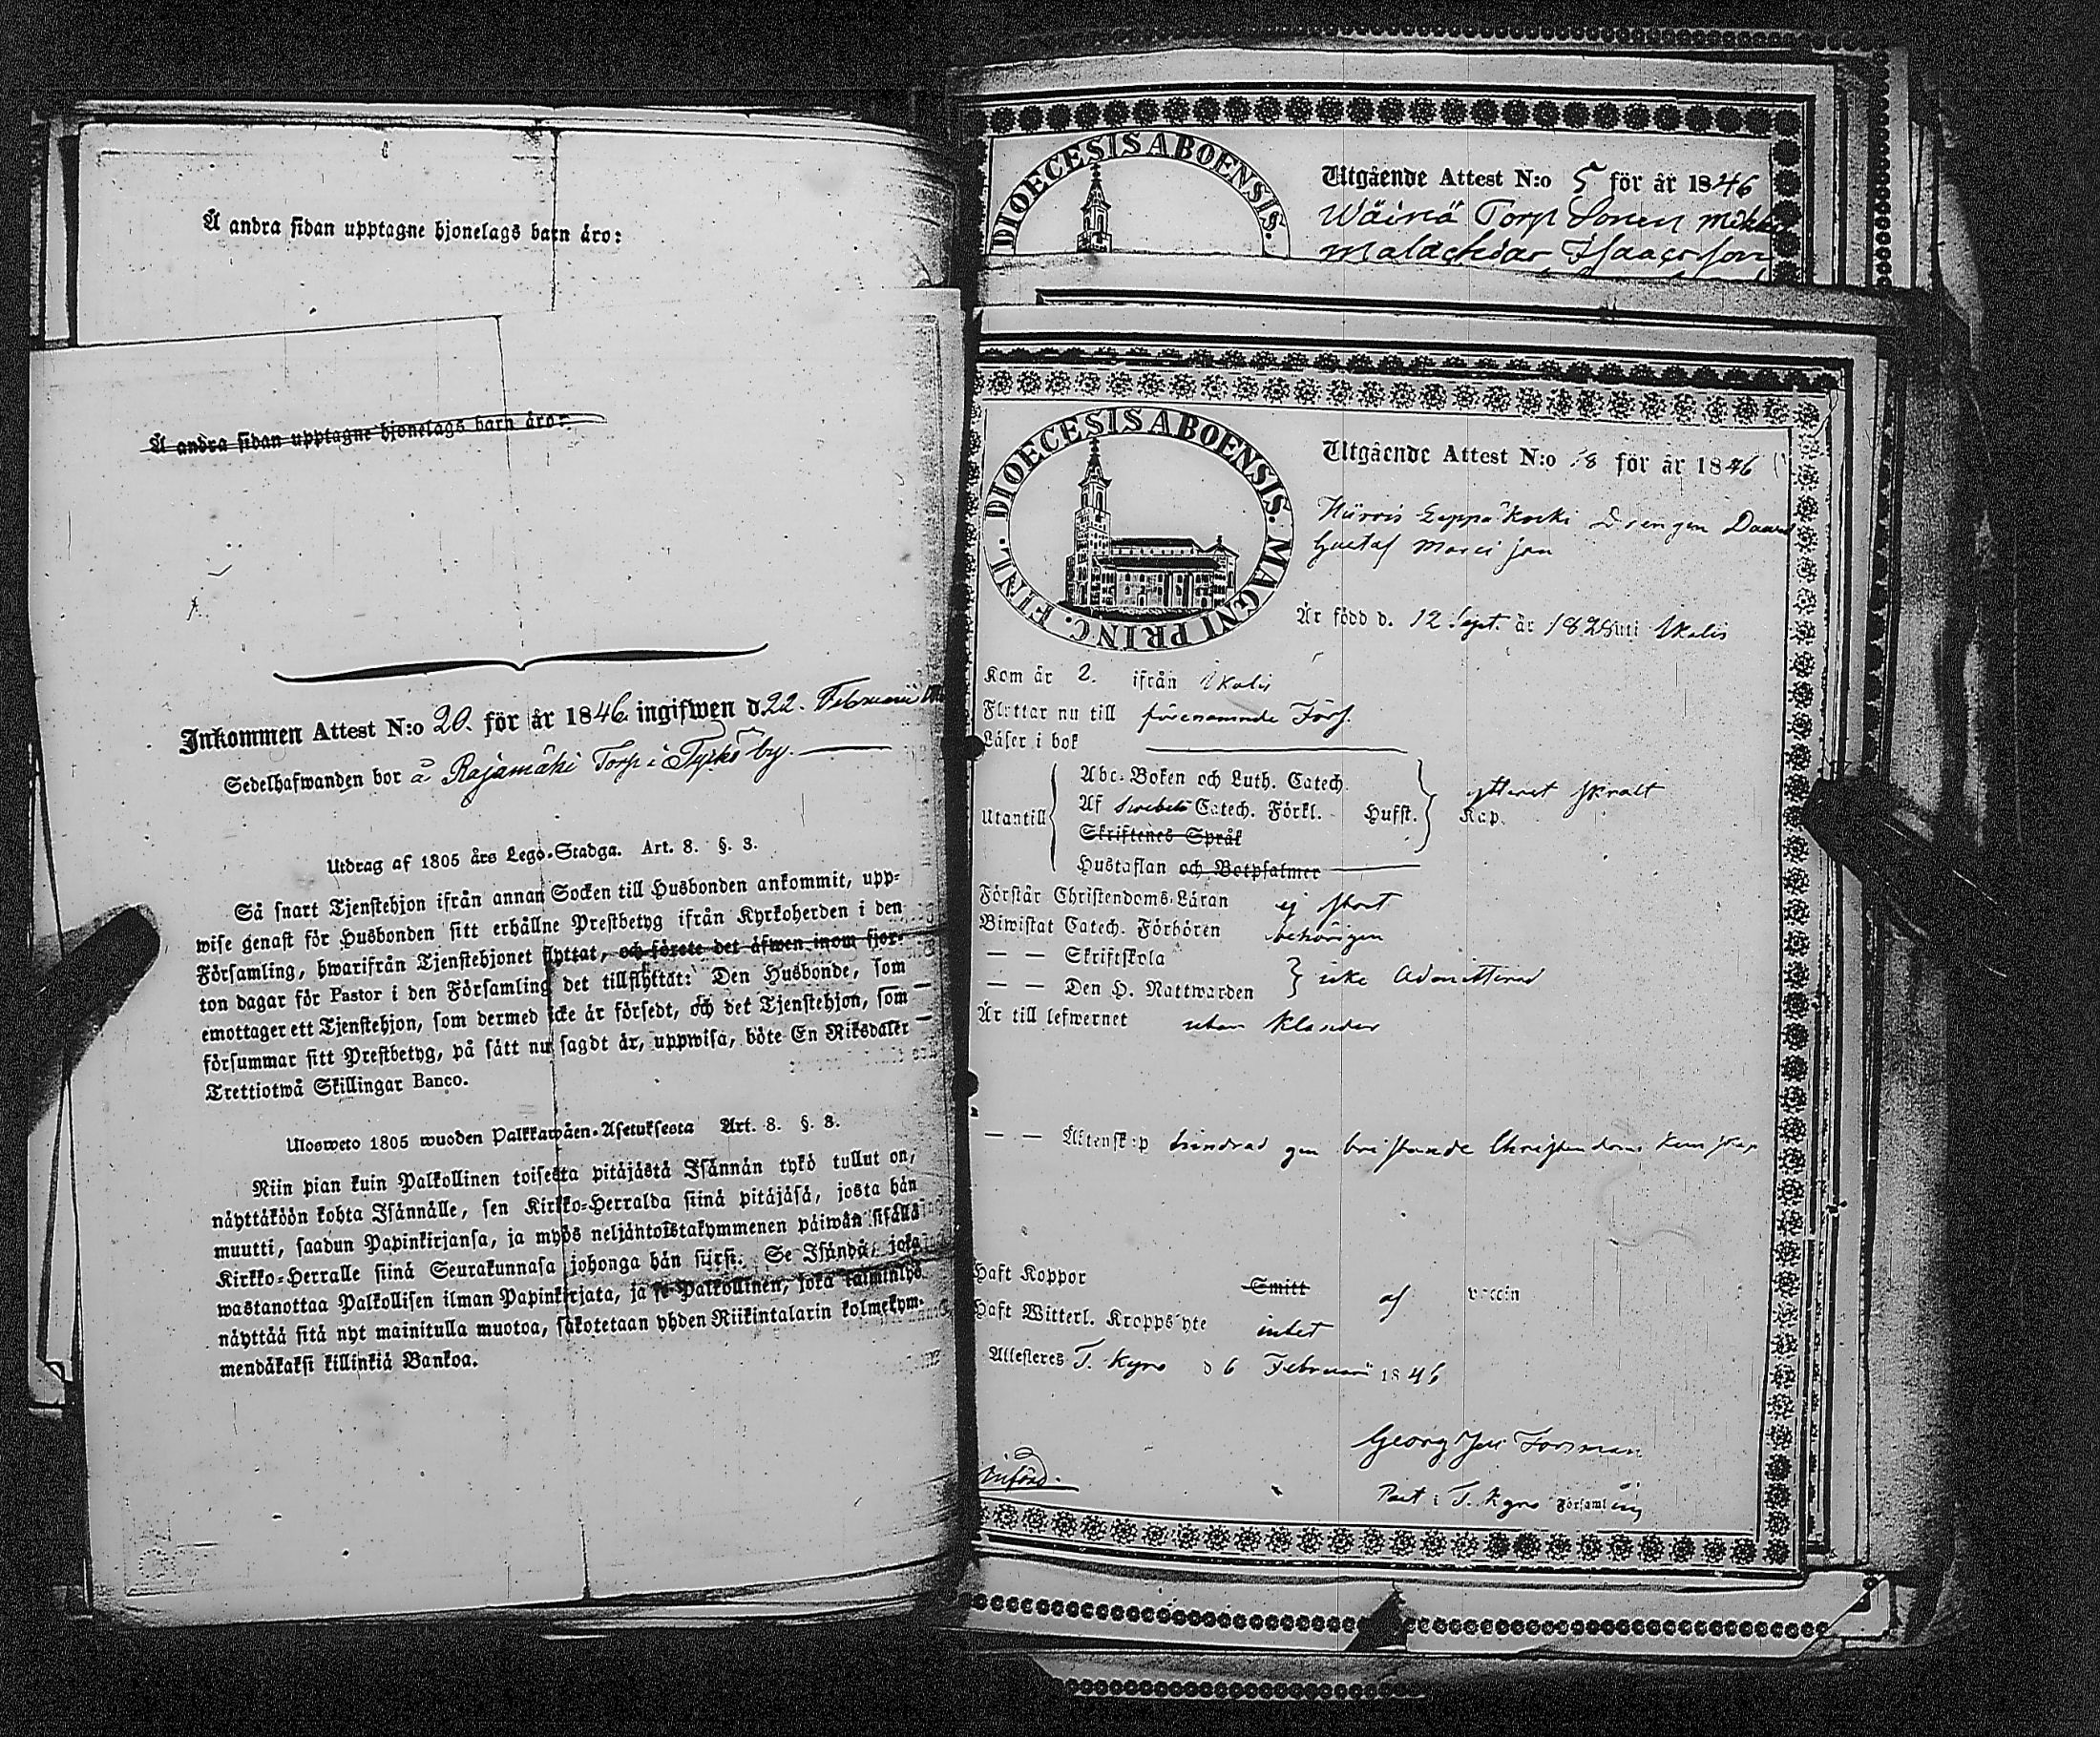 Å andra sidan upptagne hjonelags barn äro:
Å andra sidan upptagne hjonelags barn äro:
Inkommen Attest N:o 20. för år 1846 ingifwen d. 22. Februarii
Sedelhafwanden bor å Rajamäki Torp i Tyrkö by.
Utdrag af 1805 års Lego-Stadga. Art. 8. §. 3.
Så snart Tjenstehjon ifrån annan Socken till Husbonden ankommit, upp-
wise genast för Husbonden sitt erhållne Prestbetyg ifrån Kyrkoherden i den
Församling, hwarifrån Tjenstehjonet flyttat, och förete det äfwen inom fjor-
ton dagar för Pastor i den Församling det tillflyttat: Den Husbonde, som
emottager ett Tjenstehjon, som dermed icke är försedt, och det Tjenstehjon, som
försummar sitt Prestbetyg, på sätt nu sagdt är, uppwisa, böte En Riksdaler
Trettiotwå Skillingar Banco.
Ulosweto 1805 wuoden Palkkawäen-Asetuksesta Art. 8. §. 3.
Niin pian kuin Palkollinen toisesta pitäjästä Isännän tykö tullut on,
näyttäköön kohta Isännälle, sen Kirkko-Herralda siinä pitäjäsä, josta hän
muutti, saadun Papinkirjansa, ja myös neljäntoistakymmenen päiwän sisällä
Kirkko-Herralle siinä Seurakunnasa johonga hän siirsi. Se Isändä, joka
wastanottaa Palkollisen ilman Papinkirjata, ja se Palkollinen, joka laiminlyö
näyttää sitä nyt mainitulla muotoa, sakotetaan yhden Riikintalarin kolmekym-
mendäkaksi killinkiä Bankoa.
DIOECESIS ABOENSIS.
Utgående Attest N:o 5 för år 1846
Wäinä Torp Sonen Mikko
Malachias Isaacsson
DIOECESIS ABOENSIS. MAGNI PRINC. FINL.
Utgående Attest N:o 18 för år 1846
Leppäkoski Drengen
Gustaf
Är född d. 12 Sept. år 1828 uti Ikalis
Kom år 2. ifrån Ikalis
Flyttar nu till förenämnde Förs.
Läser i bok
Abc-Boken och Luth. Catech.
Utantill Af Swebelii Catech. Förkl. Husst. ytterst skralt Kap.
Skriftenes Språk
Hustaflan och Botpsalmer
Förstår Christendoms-Läran ej stort
Biwistat Catech. Förhören behörigen
— — Skriftskola
— — Den H. Nattwarden icke Admitterad
Är till lefwernet utan klander
— — Äktenskap hindrad gm bristande Christendoms kunskap
Haft Koppor Smitt af vaccin
Haft Witterl. Kroppslyte intet
Attesteras T. Kyro d 6 Februarii 1846
Georg Jac Forsman
Past i T. Kyro Församling
Införd.